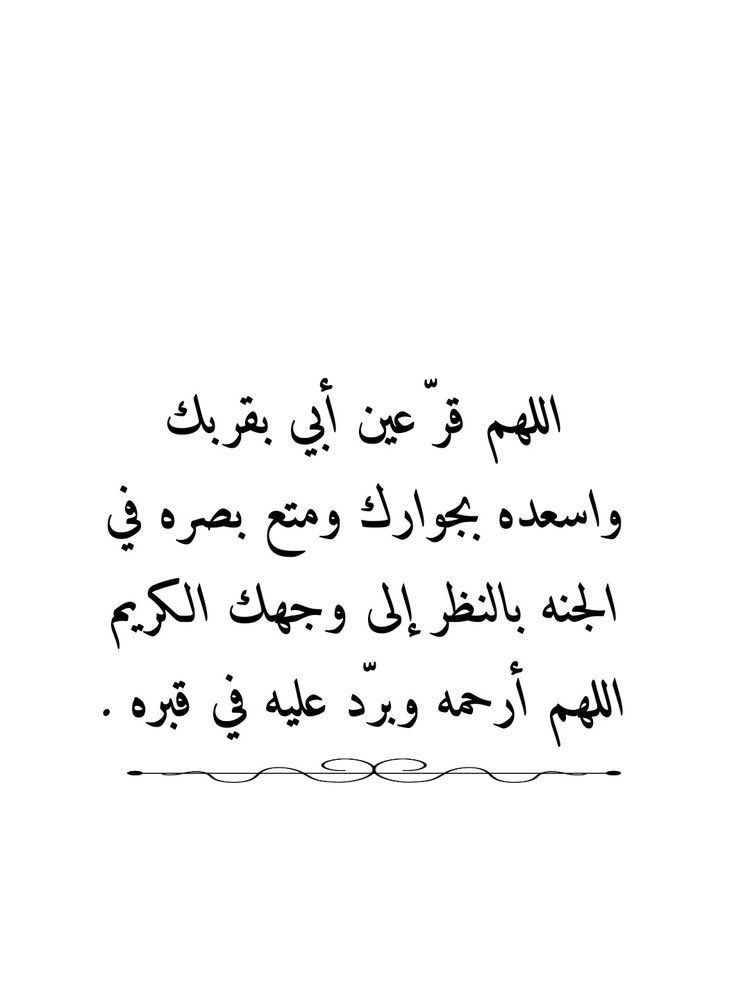 اللهم قرّ عين أبي بقربك
واسعده بجوارك ومتع بصره في
الجنه بالنظر إلى وجهك الكريم
اللهم أرحمه وبرّد عليه في قبره .